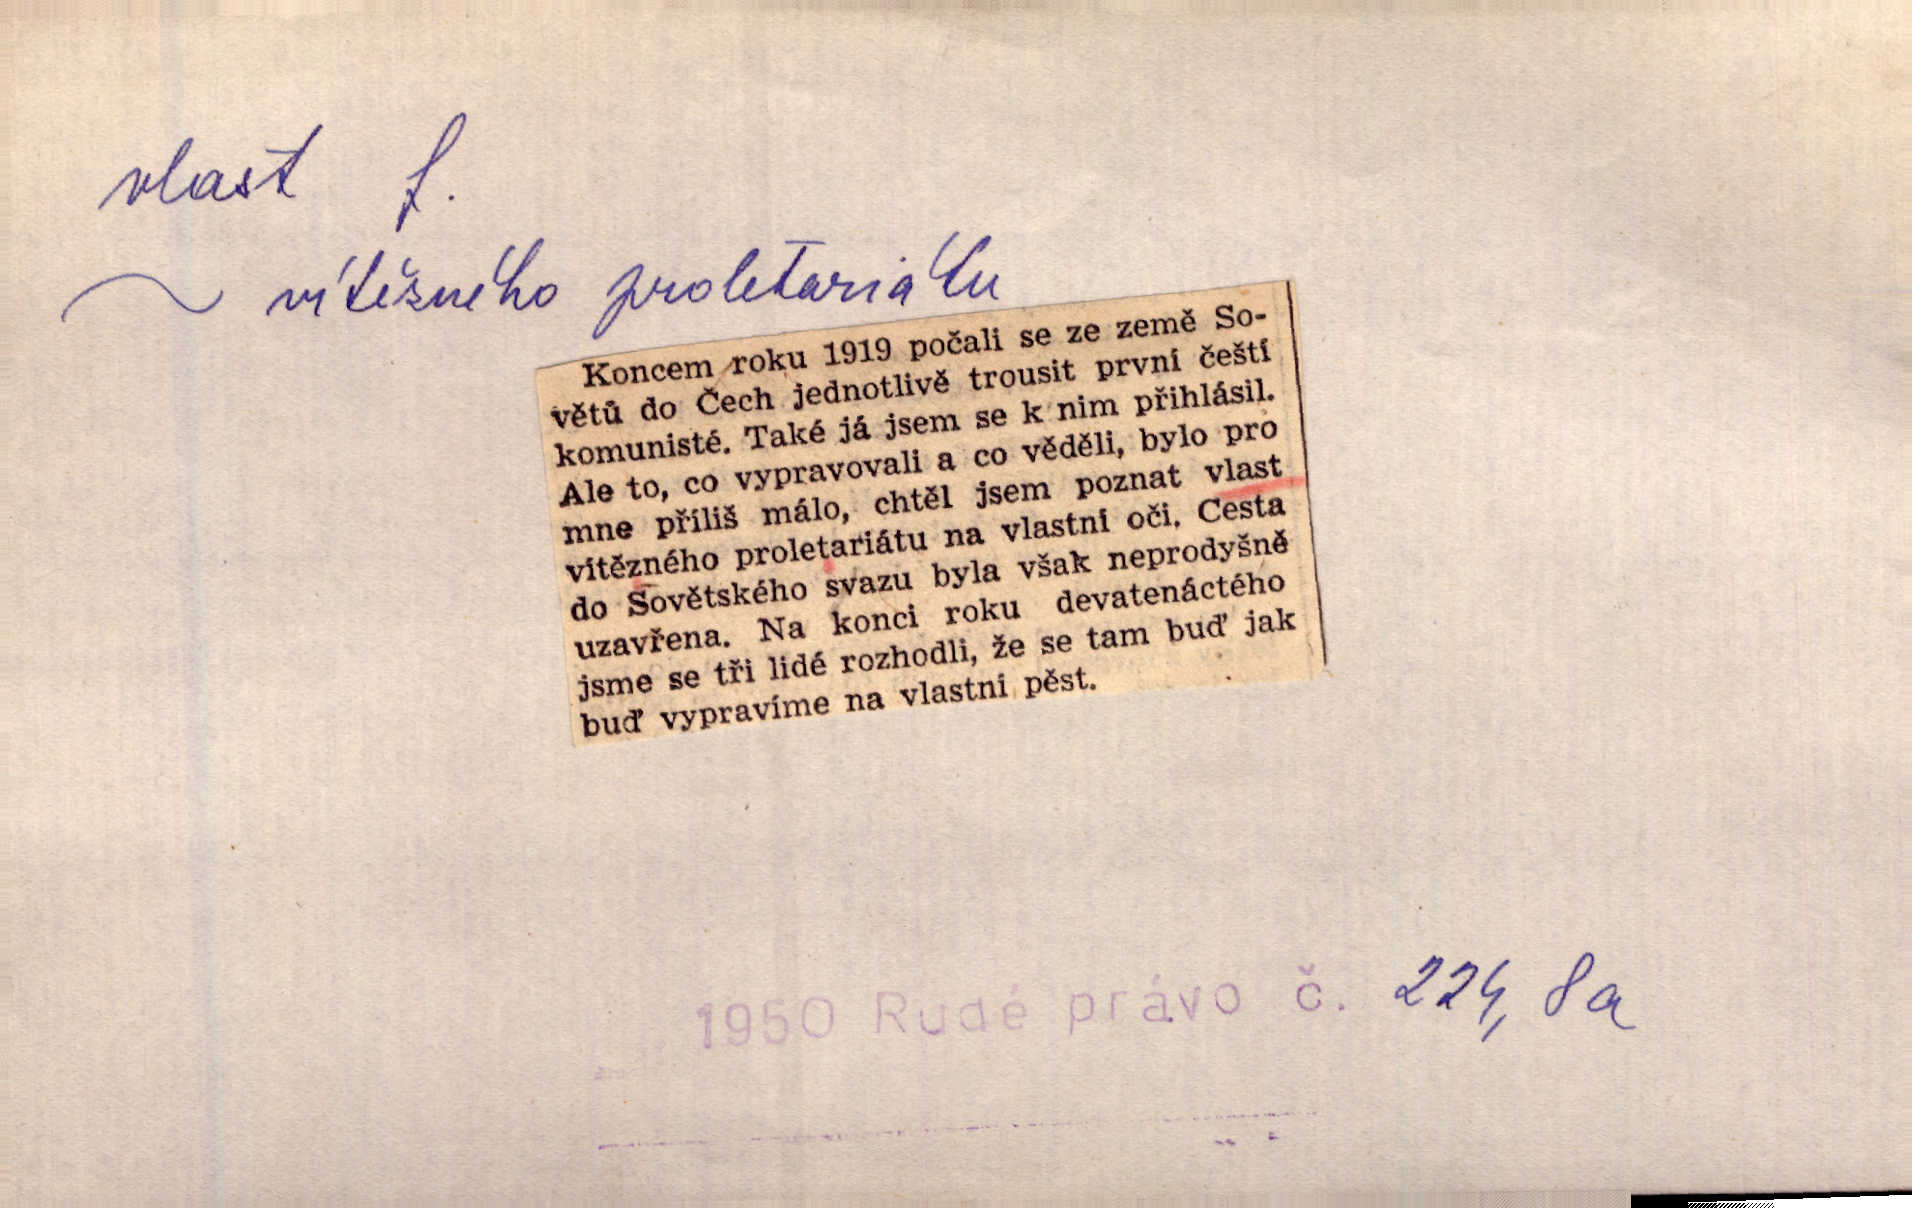 vlast f.
~ vítězného proletariátu
Koncem roku 1919 počali se ze země So-
větů do Čech jednotlivě trousit první čeští
komunisté. Také já jsem se k nim přihlásil.
Ale to, co vypravovali a co věděli, bylo pro
mne příliš málo, chtěl jsem poznat vlast
vítězného proletariátu na vlastní oči. Cesta
do Sovětského svazu byla však neprodyšně
uzavřena. Na konci roku devatenáctého
jsme se tři lidé rozhodli, že se tam buď jak
buď vypravíme na vlastní pěst.
1950 Rudé právo č. 224, 8a